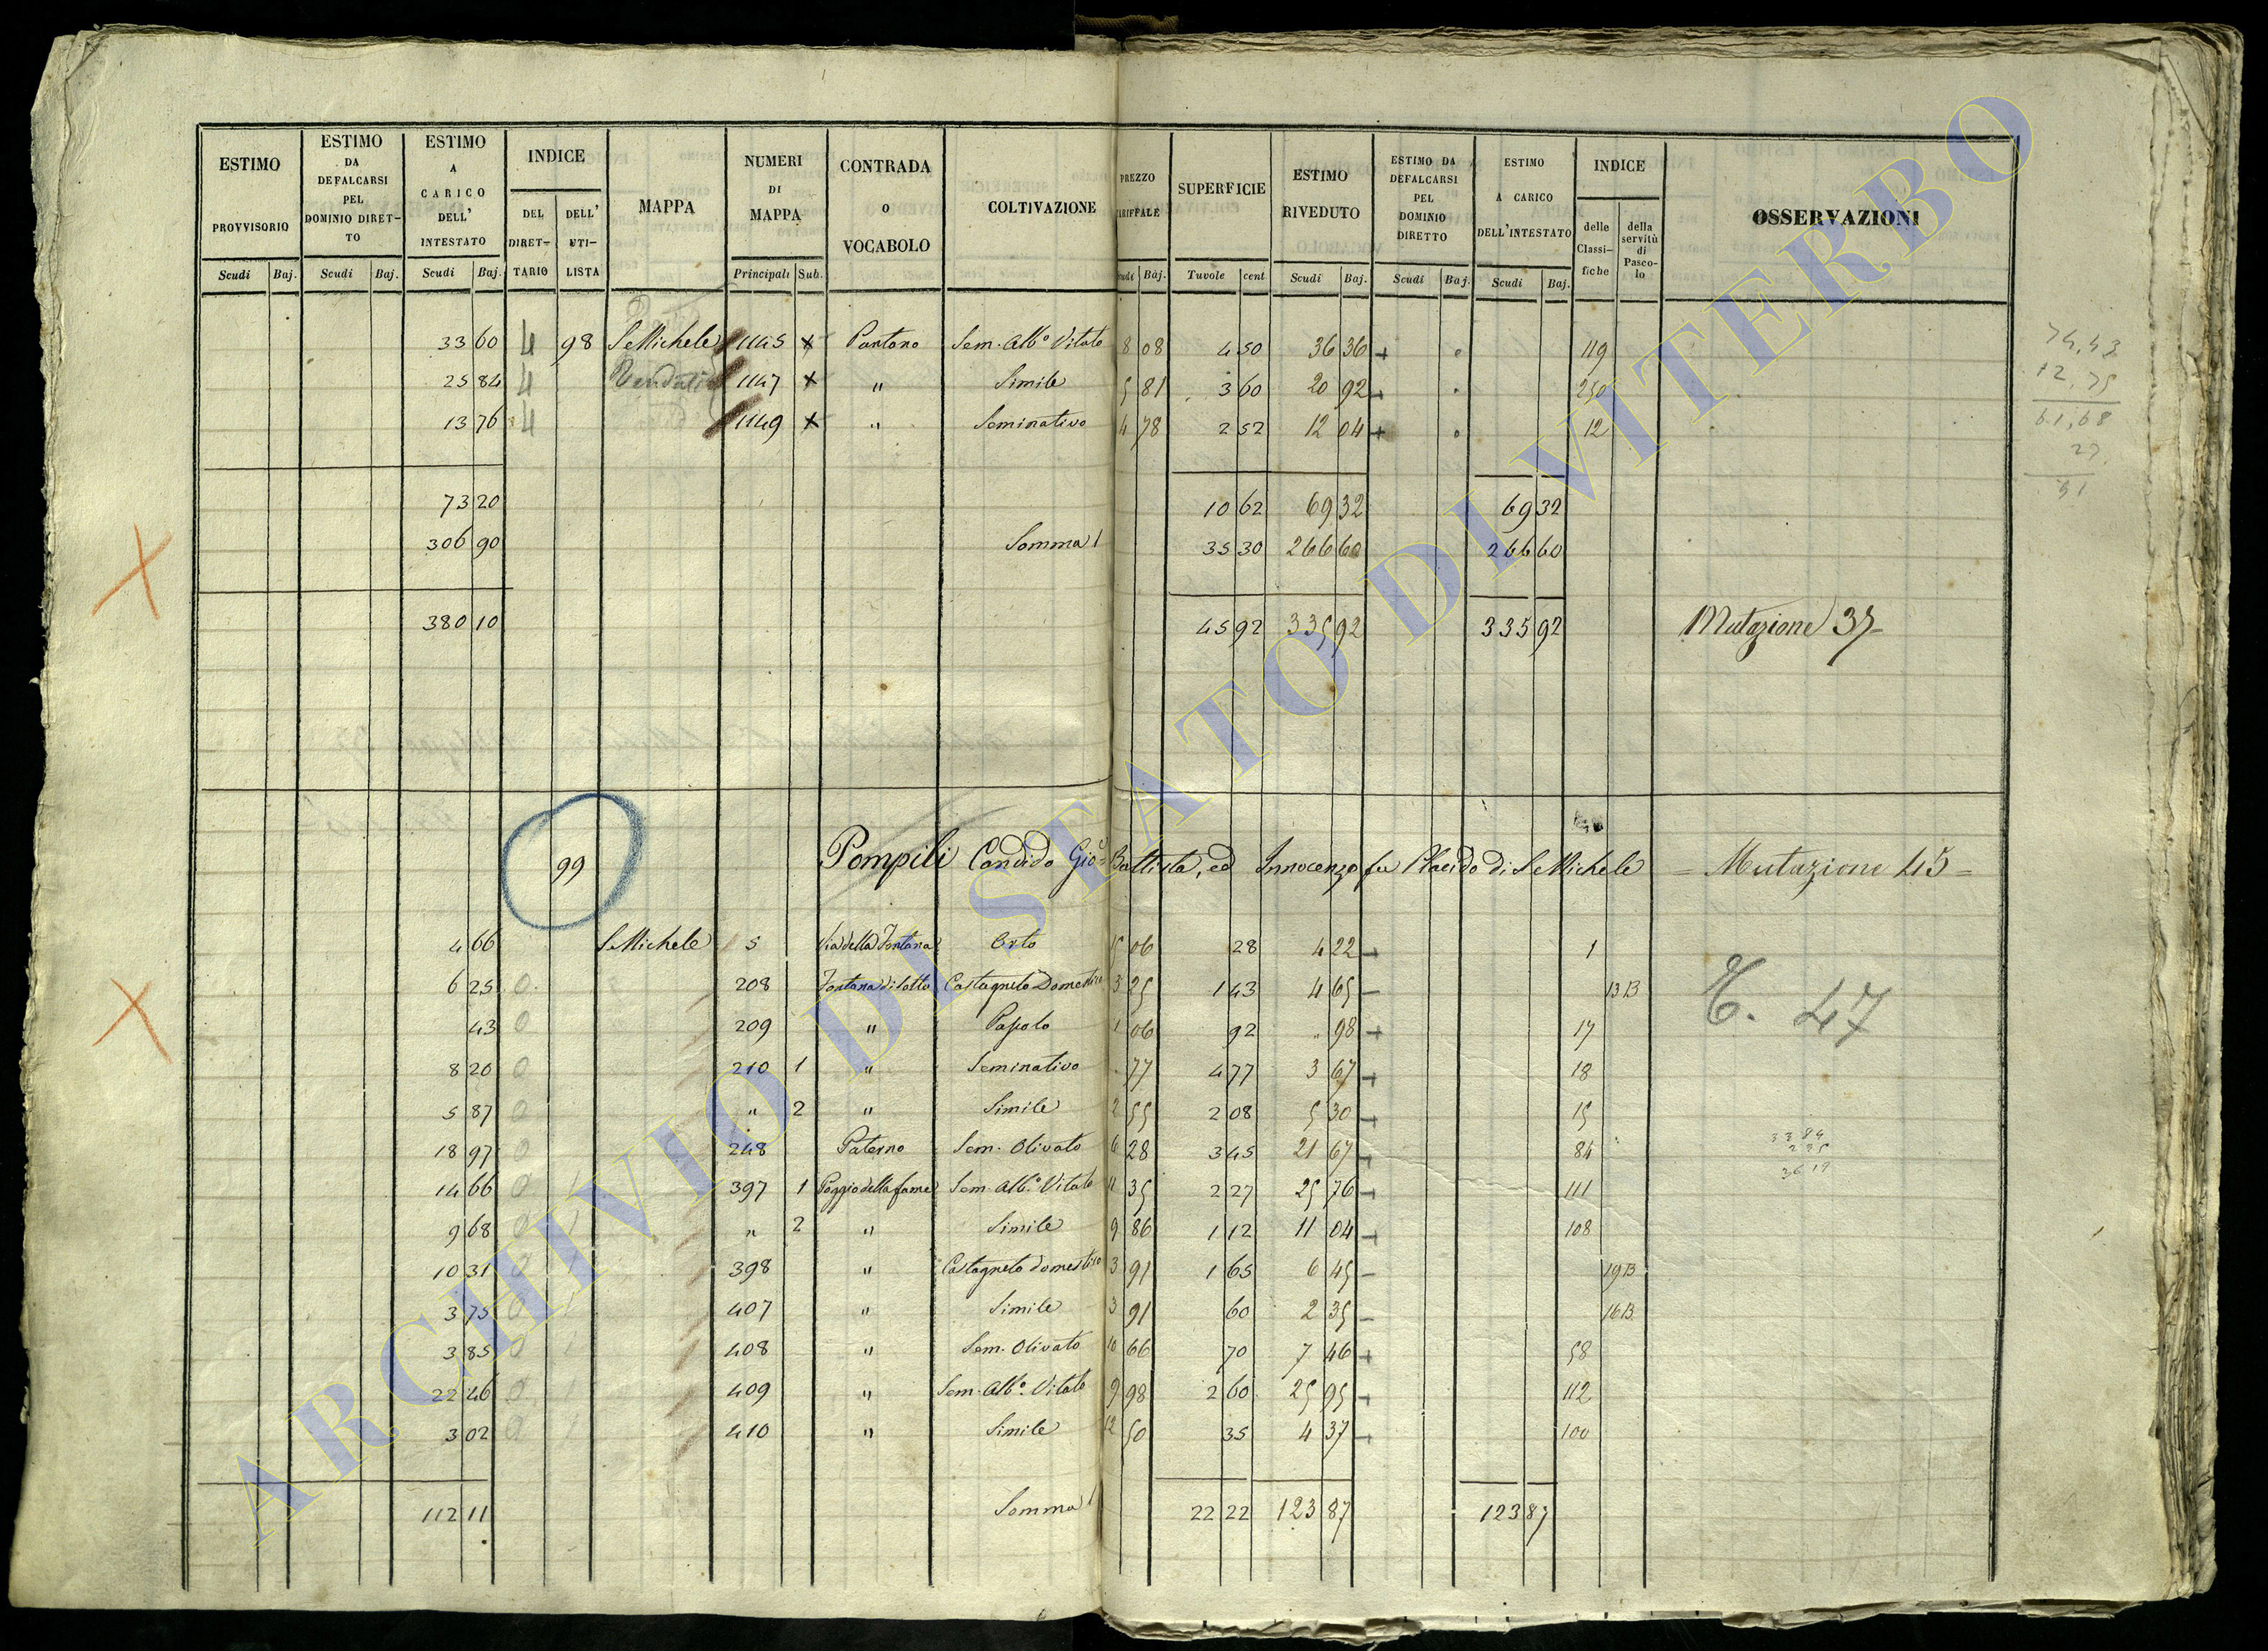 ESTIMO PROVVISORIO | ESTIMO DA DEFALCARSI PEL DOMINIO DIRETTO | ESTIMO A CARICO DELL' INTESTATO | INDICE DEL DIRETTARIO | DELL' UTILISTA | MAPPA | NUMERI DI MAPPA | CONTRADA O VOCABOLO | COLTIVAZIONE | PREZZO TARIFFALE | SUPERFICIE | ESTIMO RIVEDUTO | ESTIMO DA DEFALCARSI PEL DOMINIO DIRETTO | ESTIMO A CARICO DELL'INTESTATO | INDICE delle Classifiche | della servitù di Pascolo | OSSERVAZIONI
Scudi Baj. Scudi Baj. Scudi Baj. Principali Sub. Scudi Baj. Tavole cent Scudi Baj. Scudi Baj. Scudi Baj.
33 60 4 98 S Michele 1145 x Pantano Sem. Alb.º Vitato 8 08 4 50 36 36 + 119
25 84 4 Venduti 1147 x " Simile 5 81 3 60 20 92 + 250
13 76 4 1149 x " Seminativo 4 78 2 52 12 04 + 12
73 20 10 62 69 32 69 32
306 90 Somma 35 30 266 60 266 60
380 10 45 92 335 92 335 92 Mutazione 37
74,43
12,75
61,68
99 Pompili Candido Gio: Battista, ed Innocenzo fu Placido di S Michele = Mutazione 45 =
4 66 S Michele 5 Via della Fontana Orto 15 06 28 4 22 + 1
6 25 0 208 Fontana di sotto Castagneto Domestico 3 25 1 43 4 65 - 13 B
43 0 209 " Pascolo 1 06 92 " 98 + 17
8 20 0 210 1 " Seminativo " 77 4 77 3 67 + 18
5 87 0 " 2 " Simile 2 55 2 08 5 30 + 15
18 97 0 248 Paterno Sem. Olivato 6 28 3 45 21 67 + 84
14 66 0 397 1 Poggio della fame Sem. Alb.º Vitato 11 35 2 27 25 76 + 111
9 68 0 " 2 " Simile 9 86 1 12 11 04 + 108
10 31 0 398 " Castagneto domestico 3 91 1 65 6 45 - 19 B
3 75 0 407 " Simile 3 91 60 2 35 - 16 B
3 85 0 408 " Sem. Olivato 10 66 70 7 46 + 58
22 46 0 409 " Sem. Alb.º Vitato 9 98 2 60 25 95 + 112
3 02 0 410 " Simile 12 50 35 4 37 + 100
112 11 Somma 22 22 123 87 123 87
T. 47
ARCHIVIO DI STATO DI VITERBO